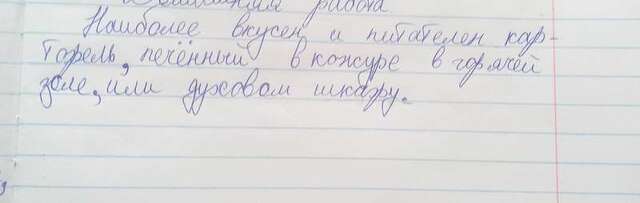 Домашняя работа
Наиболее вкусен и питателен кар-
тофель, печённый в кожуре в горячей
золе, или духовом шкафу.